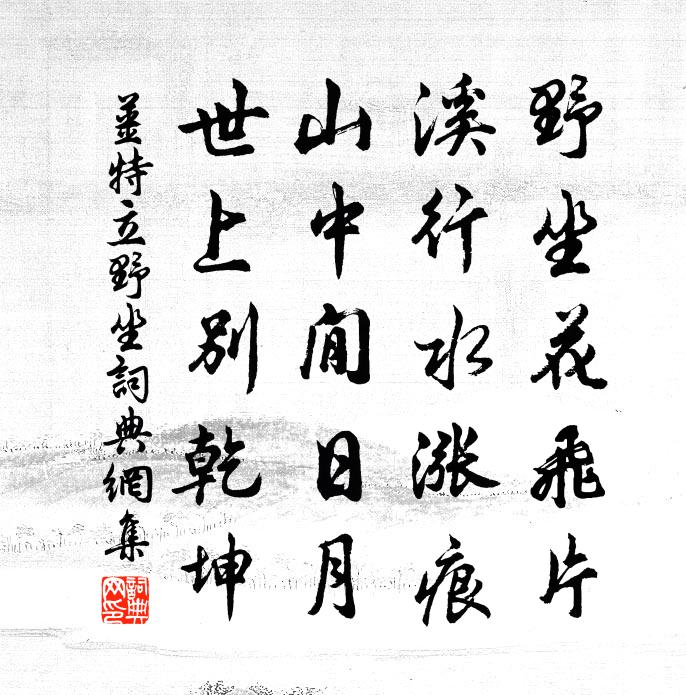 野坐花飛片
溪行水漲痕
山中閒日月
世上別乾坤
姜特立野坐詞典網集
詞典网印